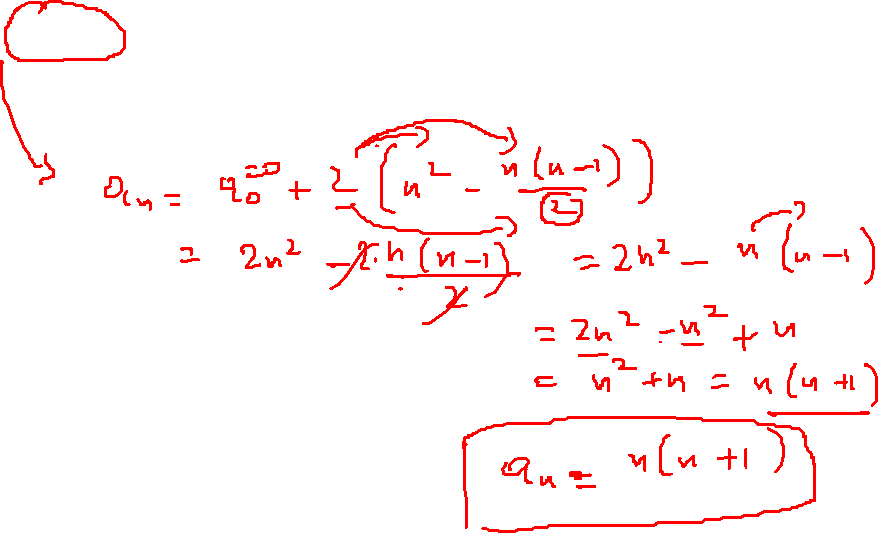 aₙ = a₀⁼⁰ + 2 (n² - n(n-1)/2)
= 2n² - 2·n(n-1)/2 = 2n² - n(n-1)
= 2n² - n² + n
= n² + n = n(n+1)
aₙ = n(n+1)